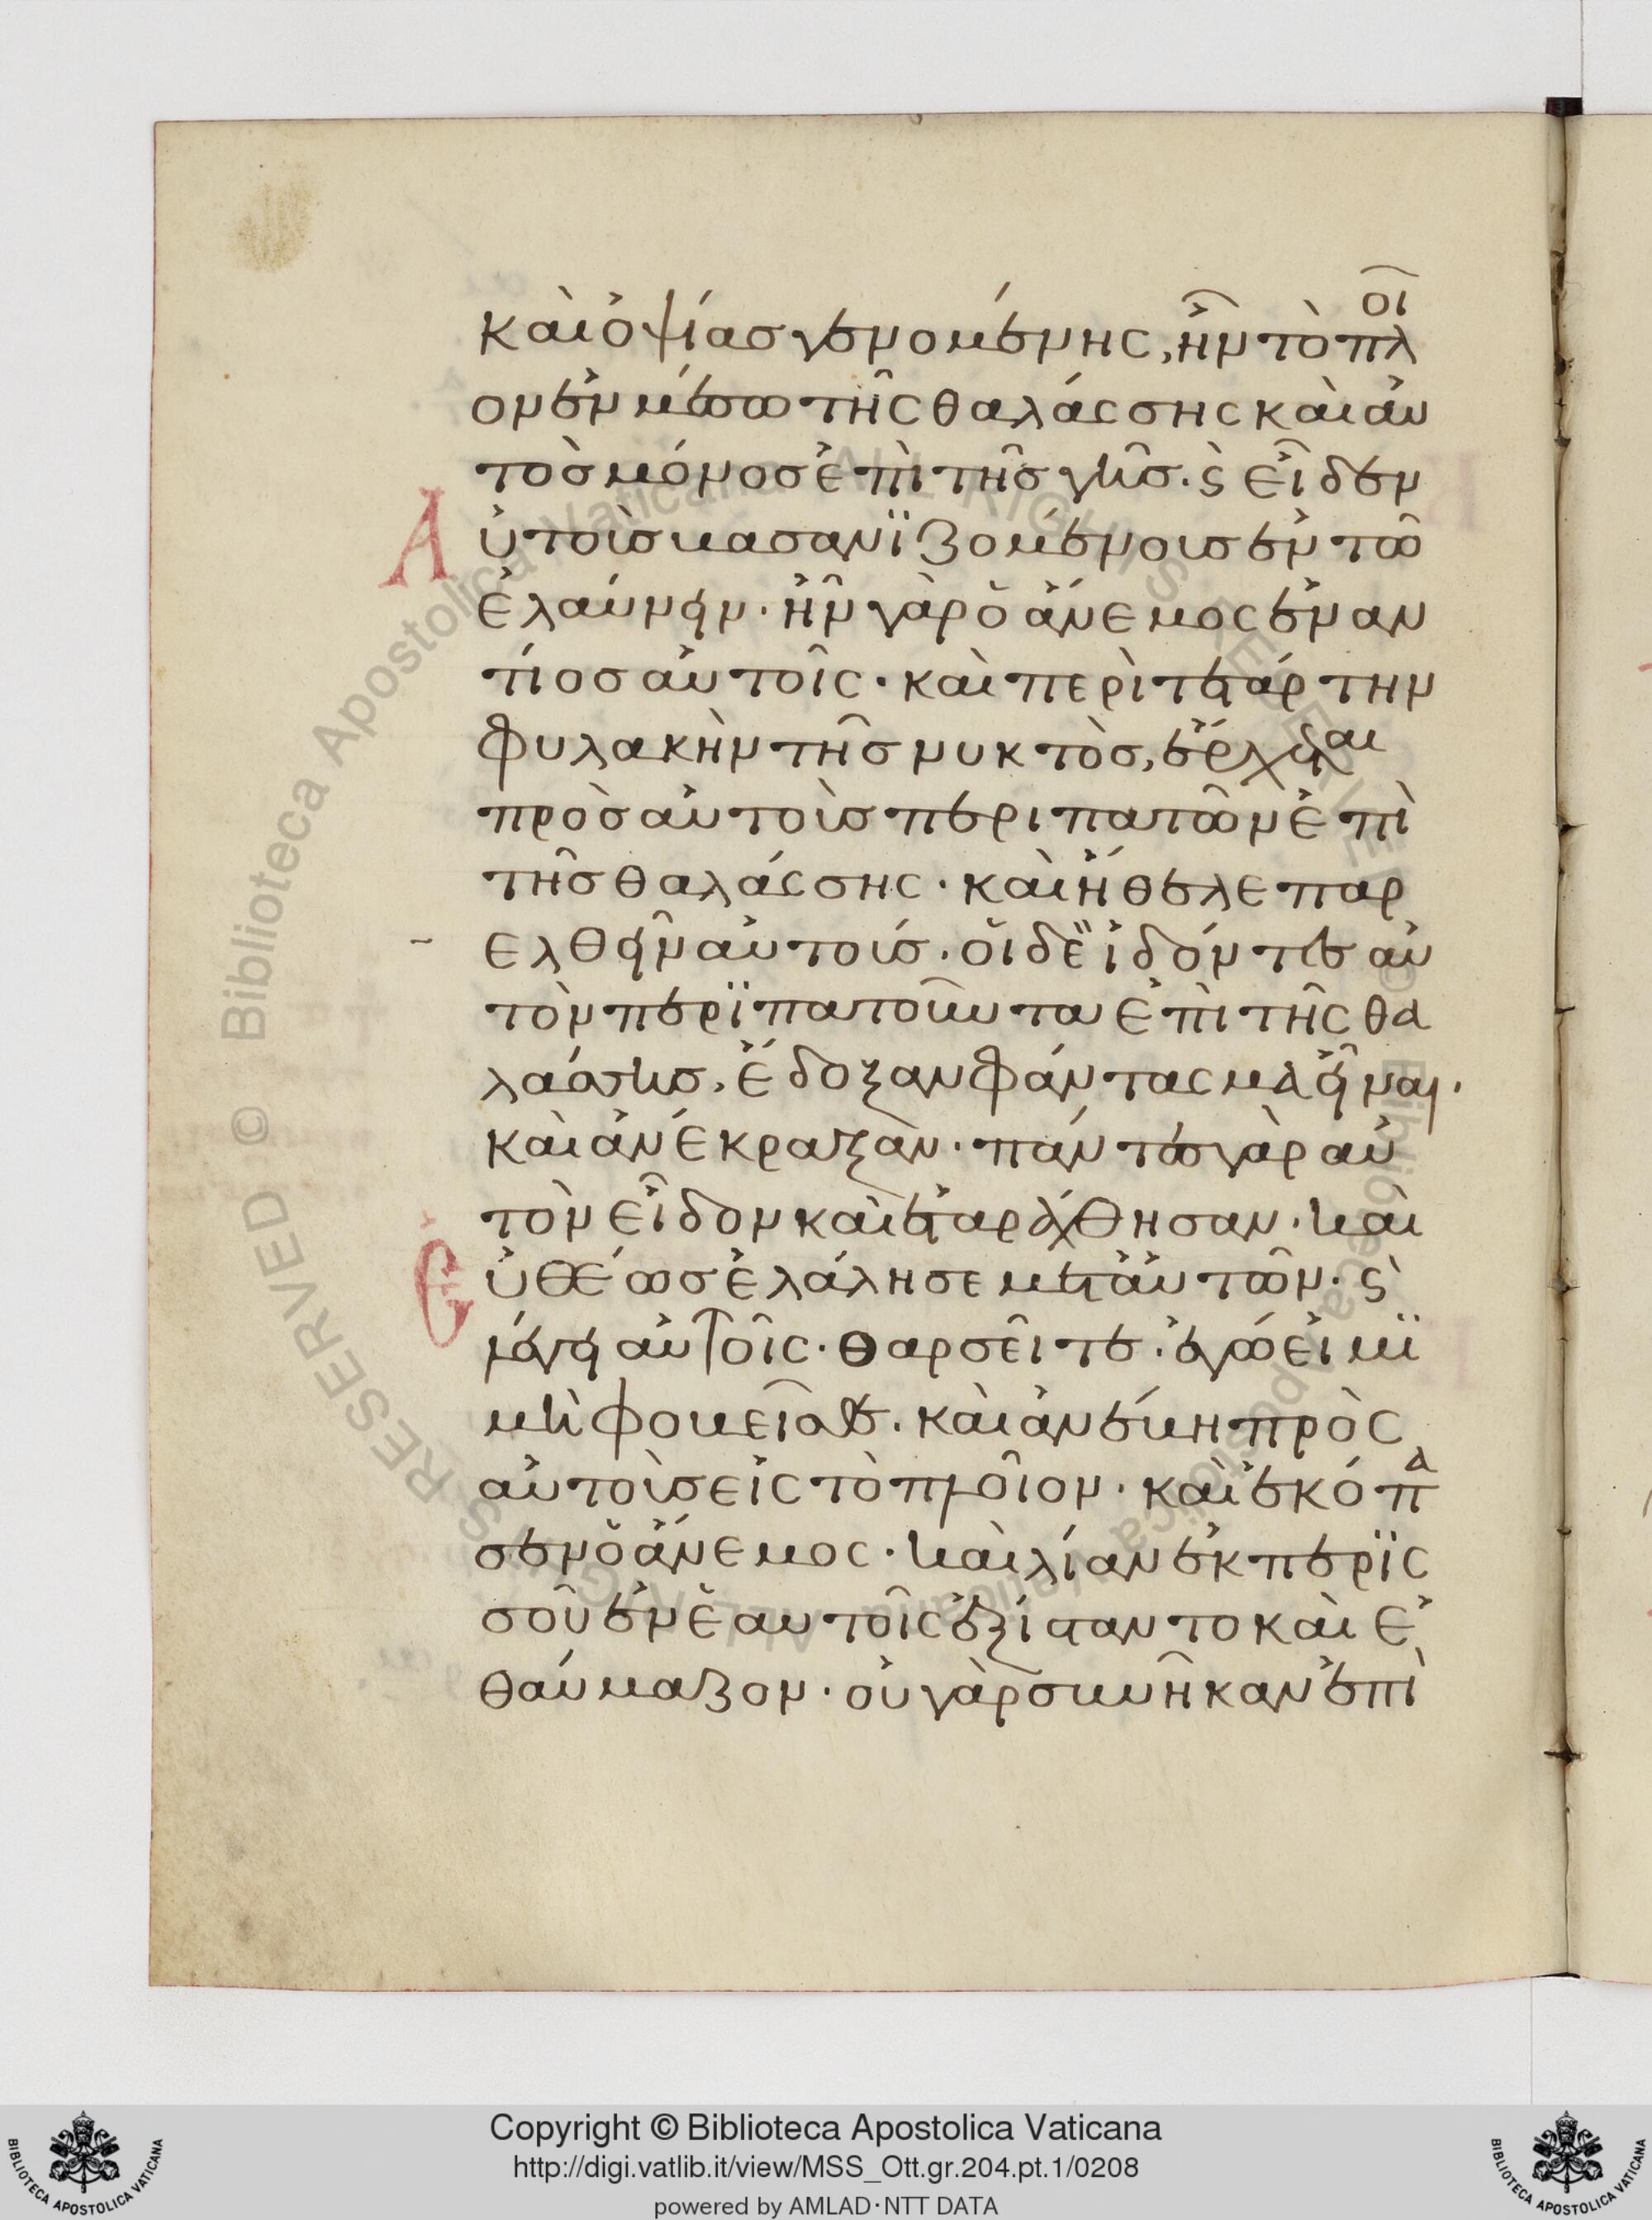 καὶ ὀψίασ γενομένης, ἦν τὸ πλοῖ
ον ἐν μέσω τῆς θαλάσσης καὶ αυ
τὸσ μόνοσ ἐπὶ τῆσ γῆσ. ϛ̀ εἶδεν
Αὐτοὺσ βασανϊζομένουσ ἐν τῶ
ἐλαύνειν· ἦν γὰρ ὁ ἄνεμος ἐναν
τίοσ αὐτοῖς· καὶ περὶ τετάρτην
φυλακὴν τῆσ νυκτὸσ, ἔρχεται
πρὸσ αὐτοὺσ περιπατῶν ἐπὶ
τῆσ θαλάσσης· καὶ ἤθελε παρ
ελθεῖν αὐτούσ· οἱ δὲ ἰδόντεσ αὐ
τὸν περϊπατοῦντα ἐπὶ τῆς θα
λάσσησ, ἔδοξαν φάντασμα εἶναι·
καὶ ἀνέκραξὰν· πάντεσ γὰρ αὐ
τὸν εἶδον καὶ ἐταράχθησαν· καὶ
Εὐθέωσ ἐλάλησε μετ' αὐτῶν· ϛ̀
λέγει αὐτοῖς· θαρσεῖτε· ἐγώ εἰμϊ
μὴ φοβεῖσθε· καὶ ἀνέβη πρὸς
αὐτοὺσ εἰς τὸ πλοῖον· καὶ ἐκόπα
σεν ὁ ἄνεμος· καὶ λίαν ἐκ περϊς
σοῦ ἐν ἑαυτοῖς ἐξίσταντο καὶ ἐ
θαύμαζον· οὐ γὰρ συνῆκαν ἐπὶ
Copyright © Biblioteca Apostolica Vaticana
http://digi.vatlib.it/view/MSS_Ott.gr.204.pt.1/0208
powered by AMLAD·NTT DATA
BIBLIOTECA APOSTOLICA VATICANA
BIBLIOTECA APOSTOLICA VATICANA